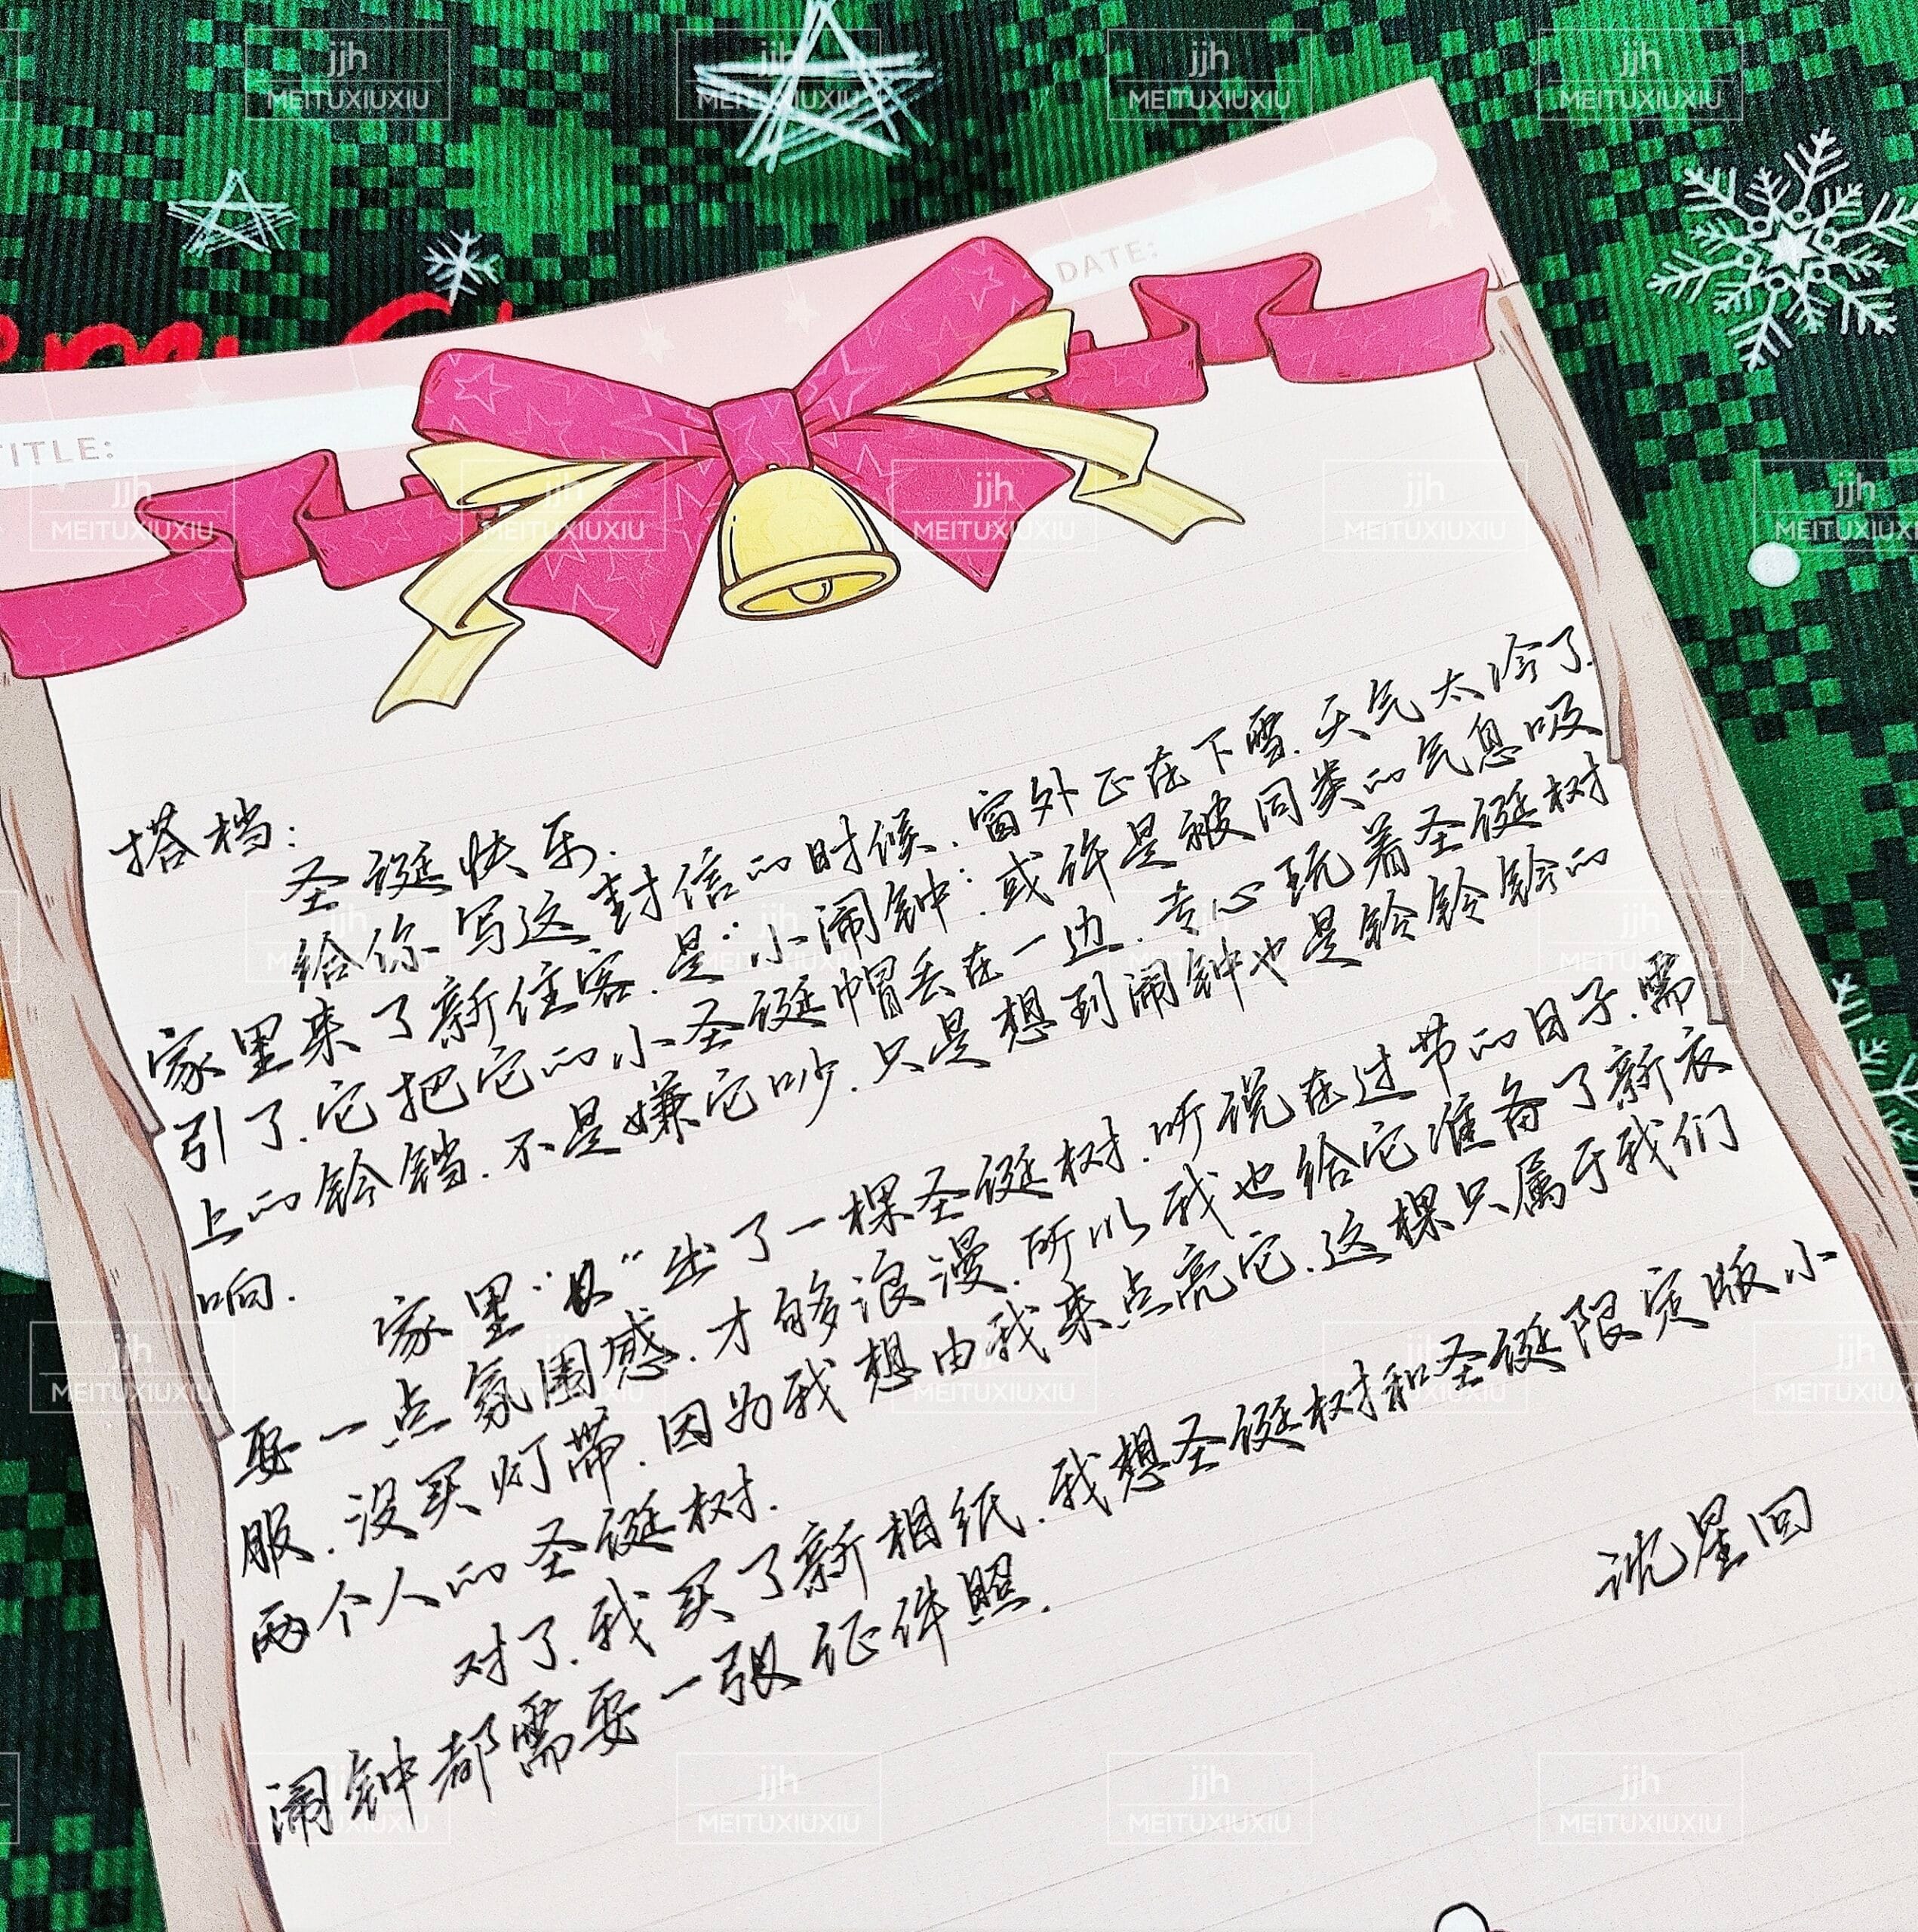 jjh
MEITUXIUXIU
DATE:
TITLE:
搭档:
圣诞快乐.
给你写这封信的时候.窗外正在下雪.天气太冷了
家里来了新住客.是"小闹钟".或许是被同类的气息吸
引了.它把它的小圣诞帽丢在一边.专心玩着圣诞树
上的铃铛.不是嫌它吵.只是想到闹钟也是铃铃铃的
响.
家里"长"出了一棵圣诞树.听说在过节的日子.需
要一点氛围感.才够浪漫.所以我也给它准备了新衣
服.没买灯带.因为我想由我来点亮它.这棵只属于我们
两个人的圣诞树.
对了.我买了新相纸.我想圣诞树和圣诞限定版小
闹钟都需要一张证件照.
沈星回